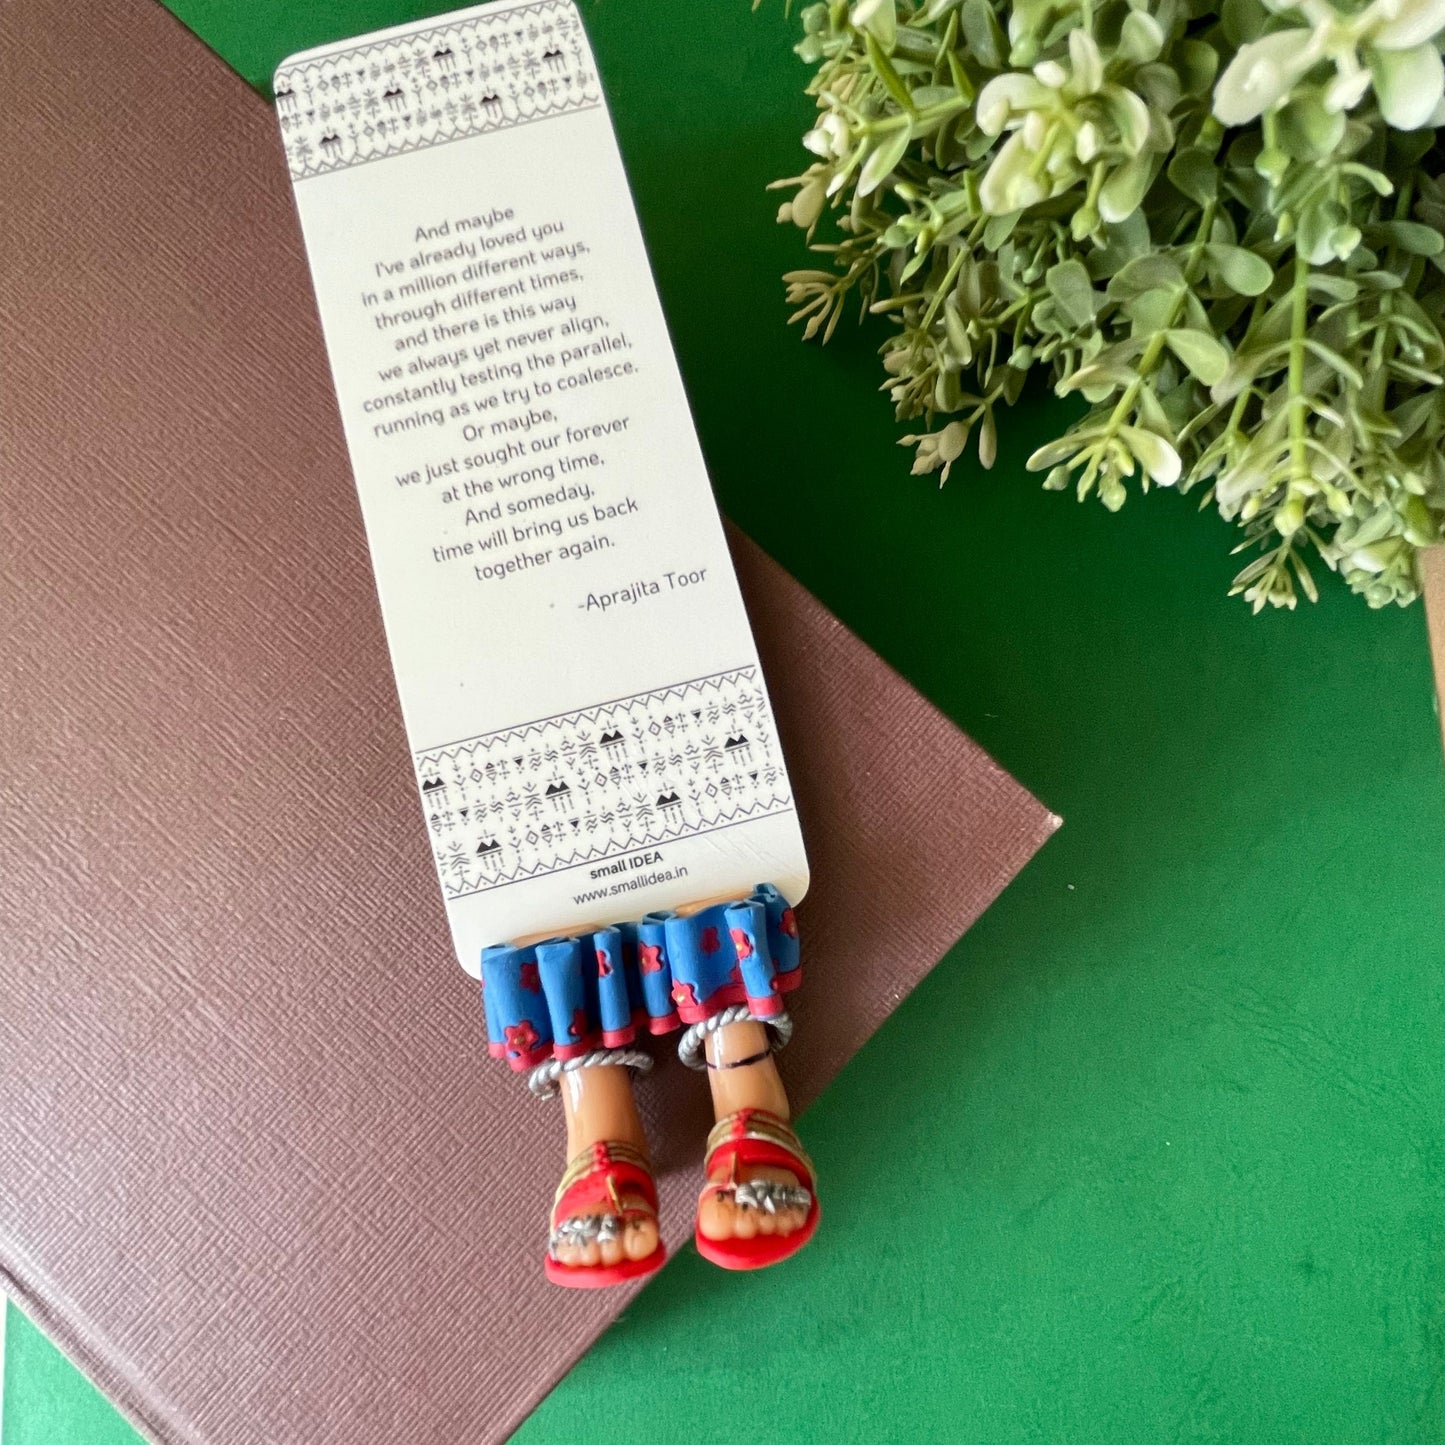 And maybe
I've already loved you
in a million different ways,
through different times,
and there is this way
we always yet never align,
constantly testing the parallel,
running as we try to coalesce.
Or maybe,
we just sought our forever
at the wrong time,
And someday,
time will bring us back
together again.
-Aprajita Toor
small IDEA
www.smallidea.in